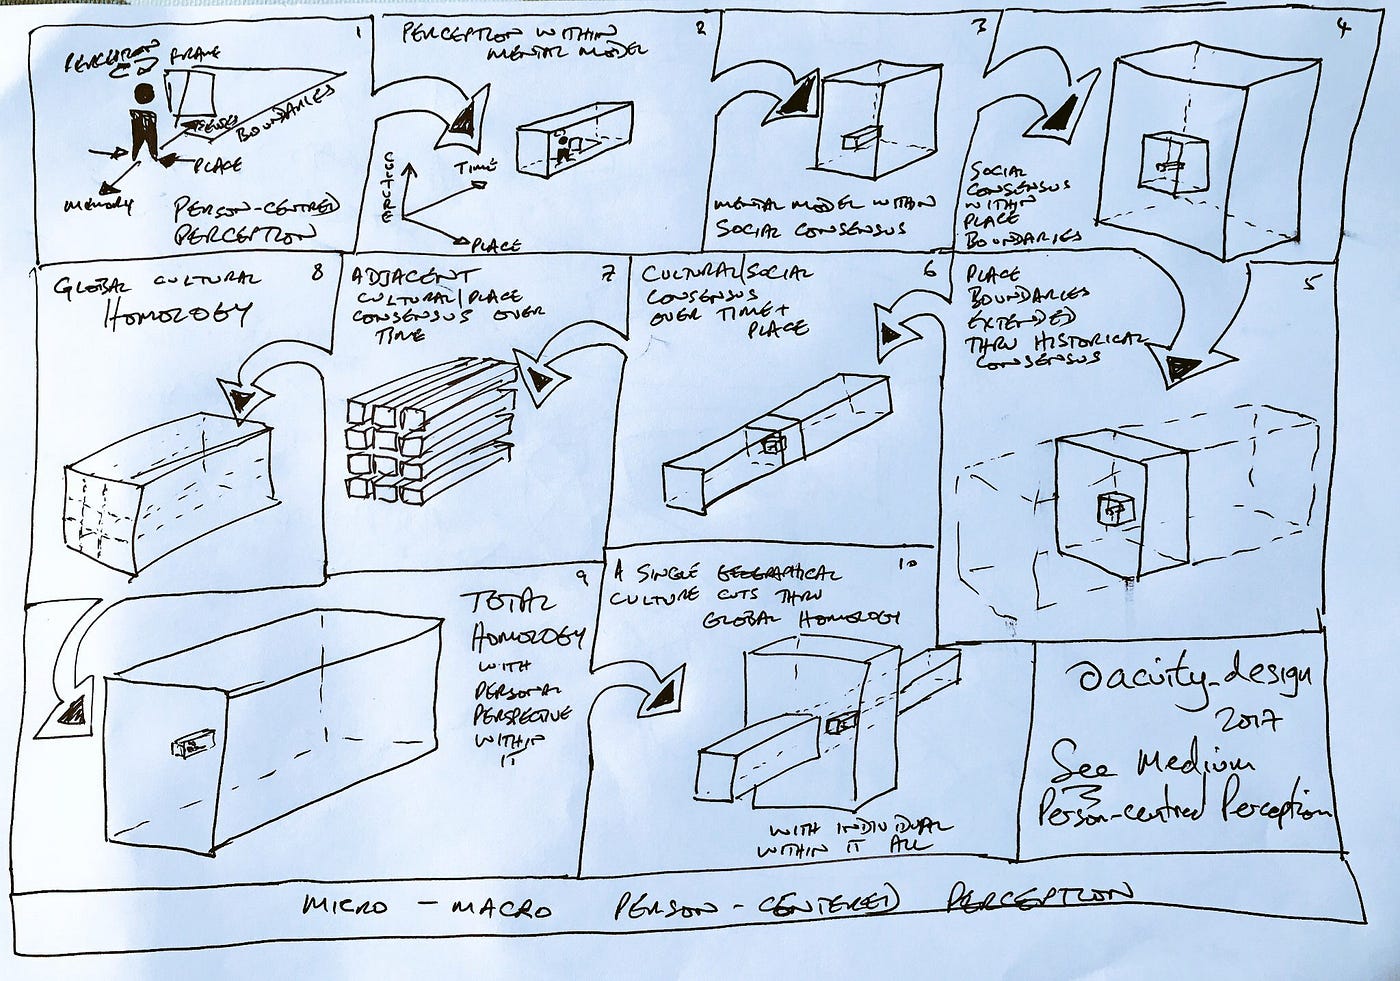 1
PERCEPTION
FRAME
SENSES
BOUNDARIES
PLACE
MEMORY
PERSON-CENTRED
PERCEPTION
2
PERCEPTION WITHIN
MENTAL MODEL
CULTURE
TIME
PLACE
3
MENTAL MODEL WITHIN
SOCIAL CONSENSUS
4
SOCIAL
CONSENSUS
WITHIN
PLACE
BOUNDARIES
5
PLACE
BOUNDARIES
EXTENDED
THRU HISTORICAL
CONSENSUS
6
CULTURAL/SOCIAL
CONSENSUS
OVER TIME+
PLACE
7
ADJACENT
CULTURAL/PLACE
CONSENSUS OVER
TIME
8
GLOBAL CULTURAL
HOMOLOGY
9
TOTAL
HOMOLOGY
WITH
PERSONAL
PERSPECTIVE
WITHIN
IT
10
A SINGLE GEOGRAPHICAL
CULTURE CUTS THRU
GLOBAL HOMOLOGY
WITH INDIVIDUAL
WITHIN IT ALL
@acuity_design
2017
See Medium
Person-centred Perception
MICRO - MACRO PERSON-CENTERED PERCEPTION